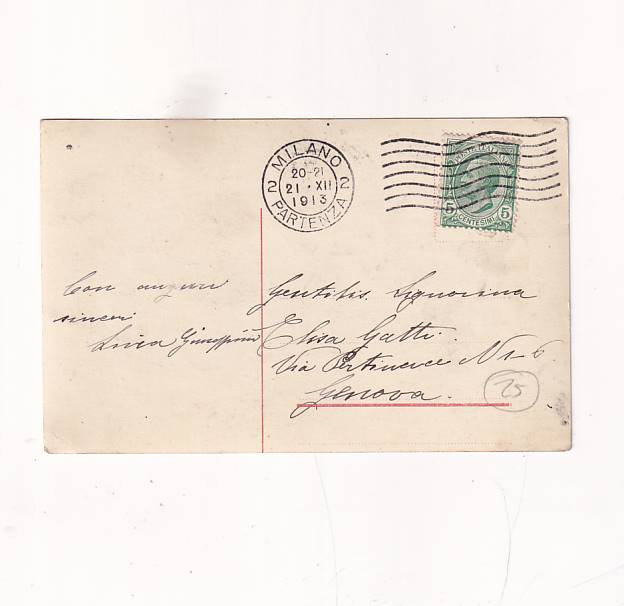 MILANO
20-21
21 · XII
1913
2 2
PARTENZA
5 CENTESIMI 5
Con auguri
sinceri
Luisa Giuseppina
Gentilis. Signorina
Elisa Gatti.
Via Pertinace N 6
Genova.
25